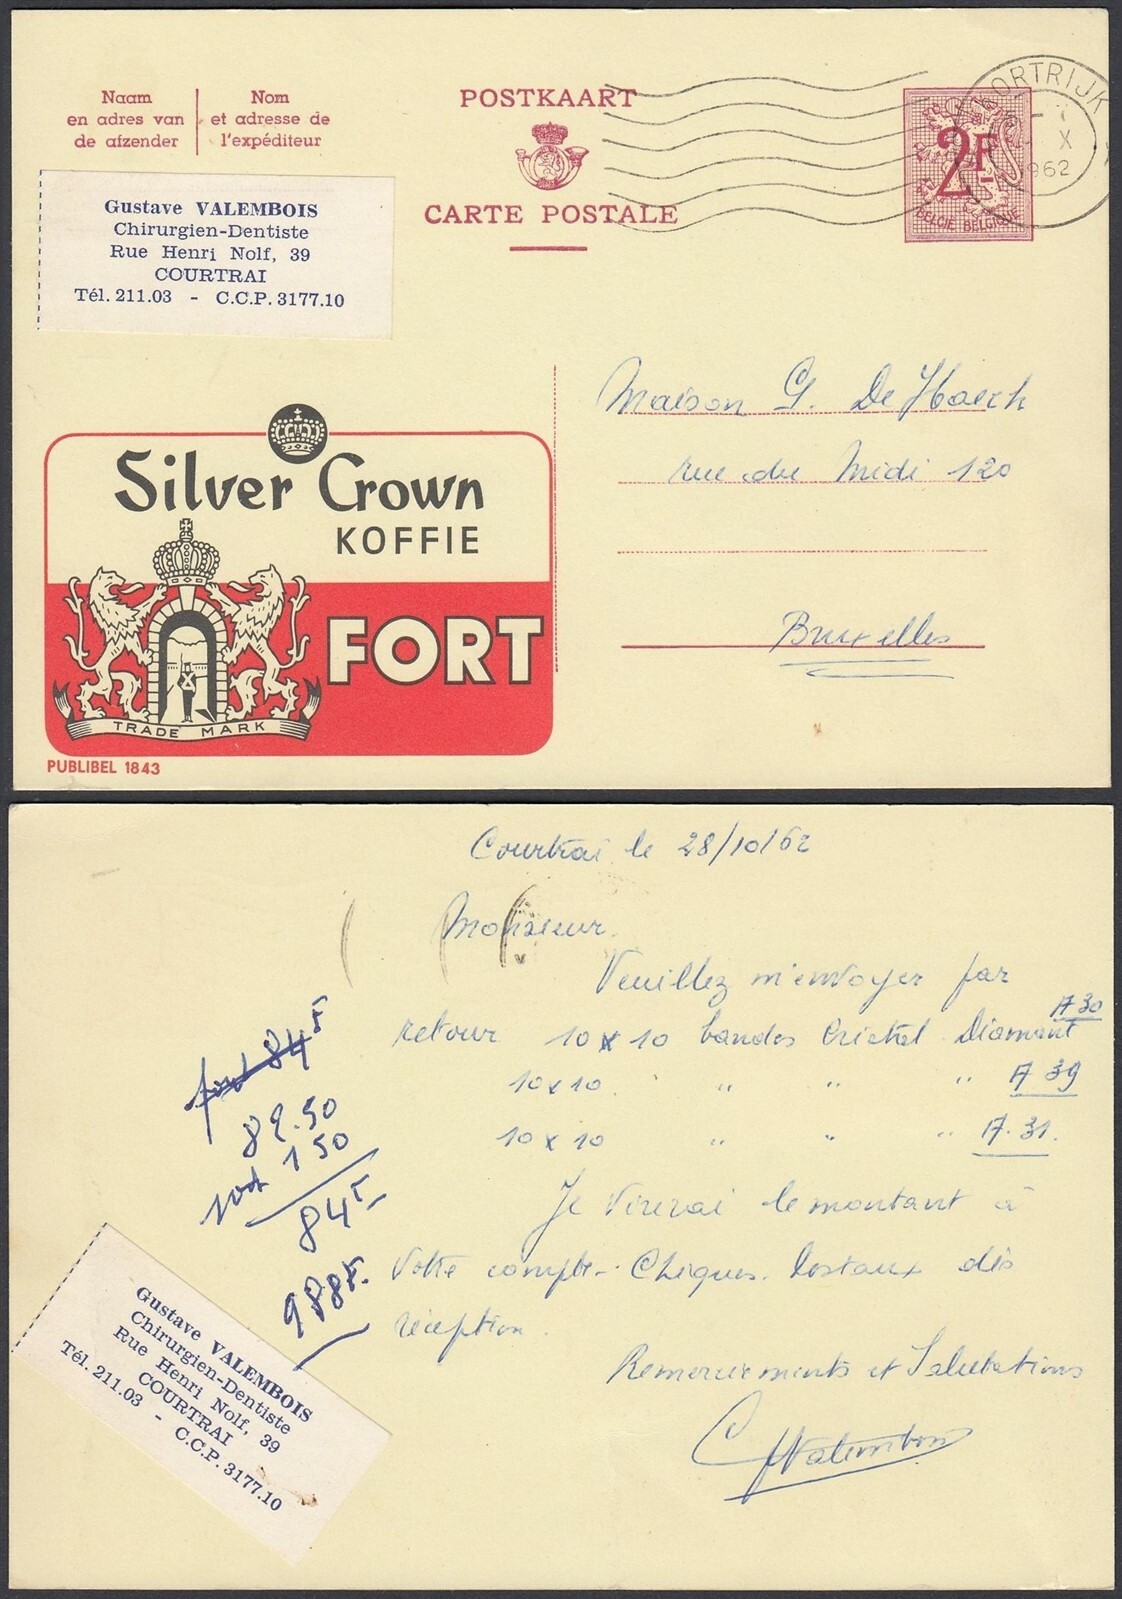 Naam
en adres van
de afzender
Nom
et adresse de
l'expéditeur
POSTKAART
CARTE POSTALE
KORTRIJK
X
1962
2F
BELGIE BELGIQUE
Gustave VALEMBOIS
Chirurgien-Dentiste
Rue Henri Nolf, 39
COURTRAI
Tél. 211.03 - C.C.P. 3177.10
Maison G. De Haeck
rue du Midi 120
Bruxelles
Silver Crown
KOFFIE
FORT
TRADE MARK
PUBLIBEL 1843
Courtrai le 28/10/62
Monsieur.
Veuillez m'envoyer par
retour 10 x 10 bandes Cristal Diamant A 30
10 x 10 " " " A 39
10 x 10 " " " A. 31.
Je virerai le montant à
Votre compte - Chèques Postaux dès
réception.
Remerciements et Salutations
GValembois
84F
82.50
1 50
84F
988F.
Gustave VALEMBOIS
Chirurgien-Dentiste
Rue Henri Nolf, 39
COURTRAI
Tél. 211.03 - C.C.P. 3177.10